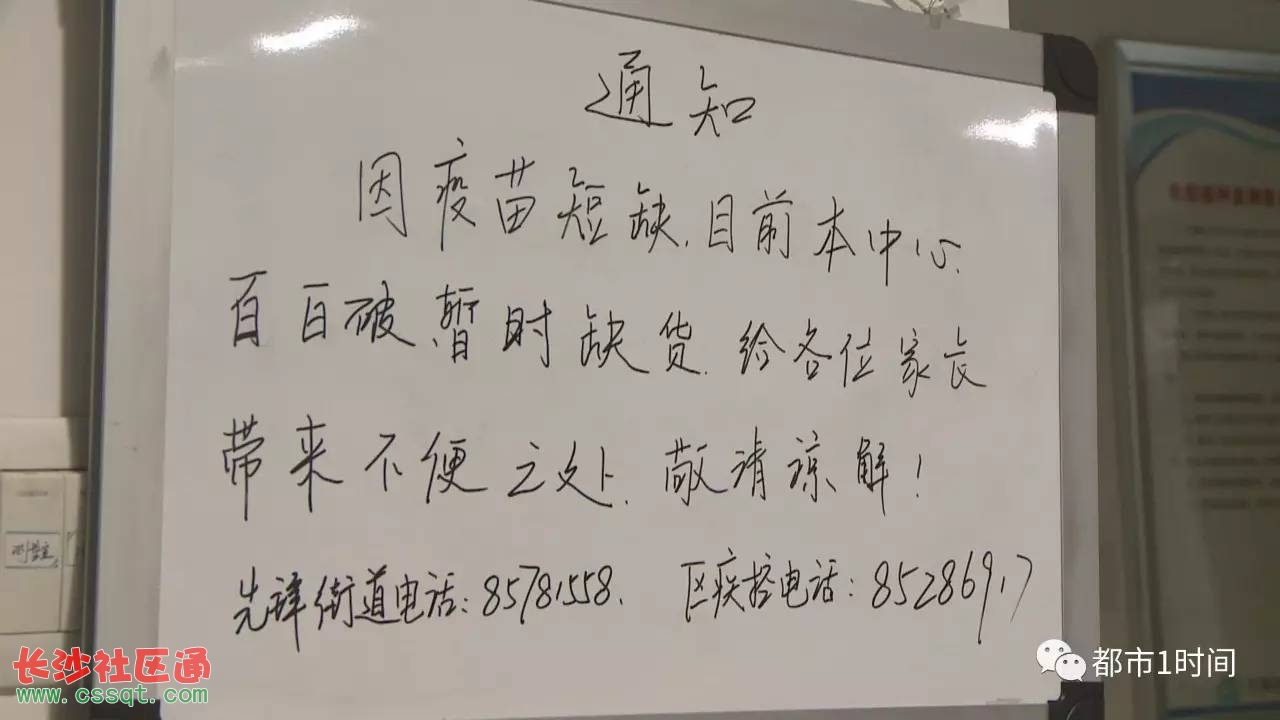 通知
因疫苗短缺,目前本中心
百白破暂时缺货.给各位家长
带来不便之处.敬请谅解!
街道电话:85781558. 区疾控电话:85286917
长沙社区通
www.cssqt.com
都市1时间